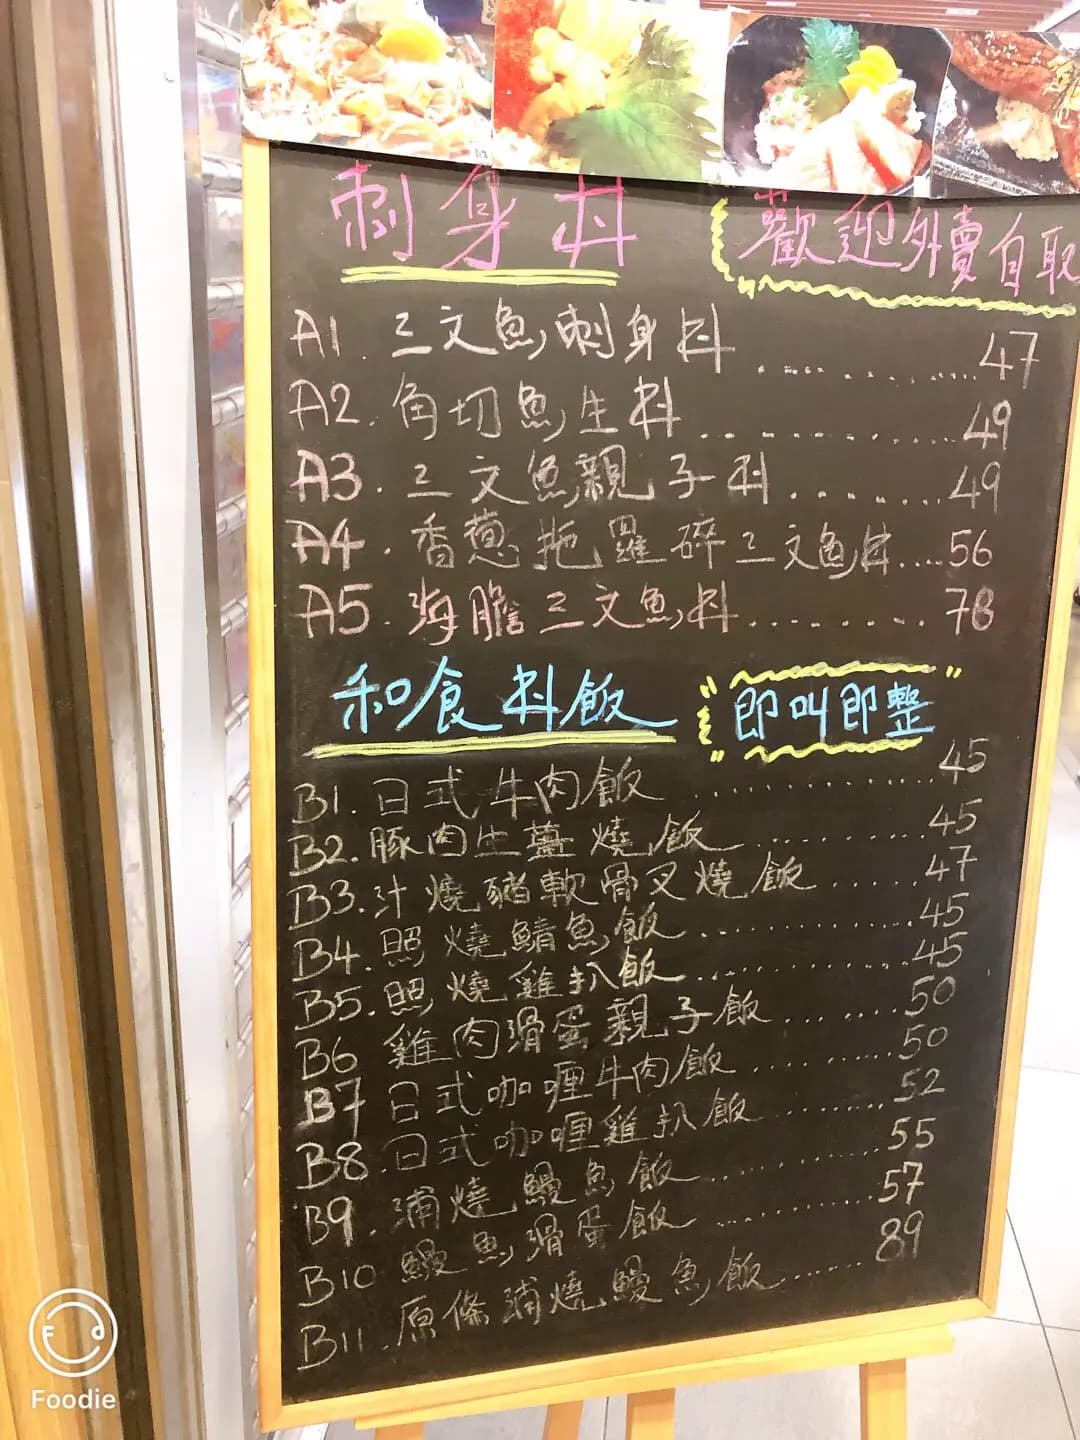 刺身丼
歡迎外賣自取
A1. 三文魚刺身丼 47
A2. 角切魚生丼 49
A3. 三文魚親子丼 49
A4. 香蔥拖羅碎三文魚丼 56
A5. 海膽三文魚丼 78
和食丼飯
即叫即整
B1. 日式牛肉飯 45
B2. 豚肉生薑燒飯 45
B3. 汁燒豬軟骨叉燒飯 47
B4. 照燒鯖魚飯 45
B5. 照燒雞扒飯 45
B6 雞肉滑蛋親子飯 50
B7 日式咖喱牛肉飯 50
B8. 日式咖喱雞扒飯 52
B9. 浦燒鰻魚飯 55
B10 鰻魚滑蛋飯 57
B11. 原條浦燒鰻魚飯 89
Foodie